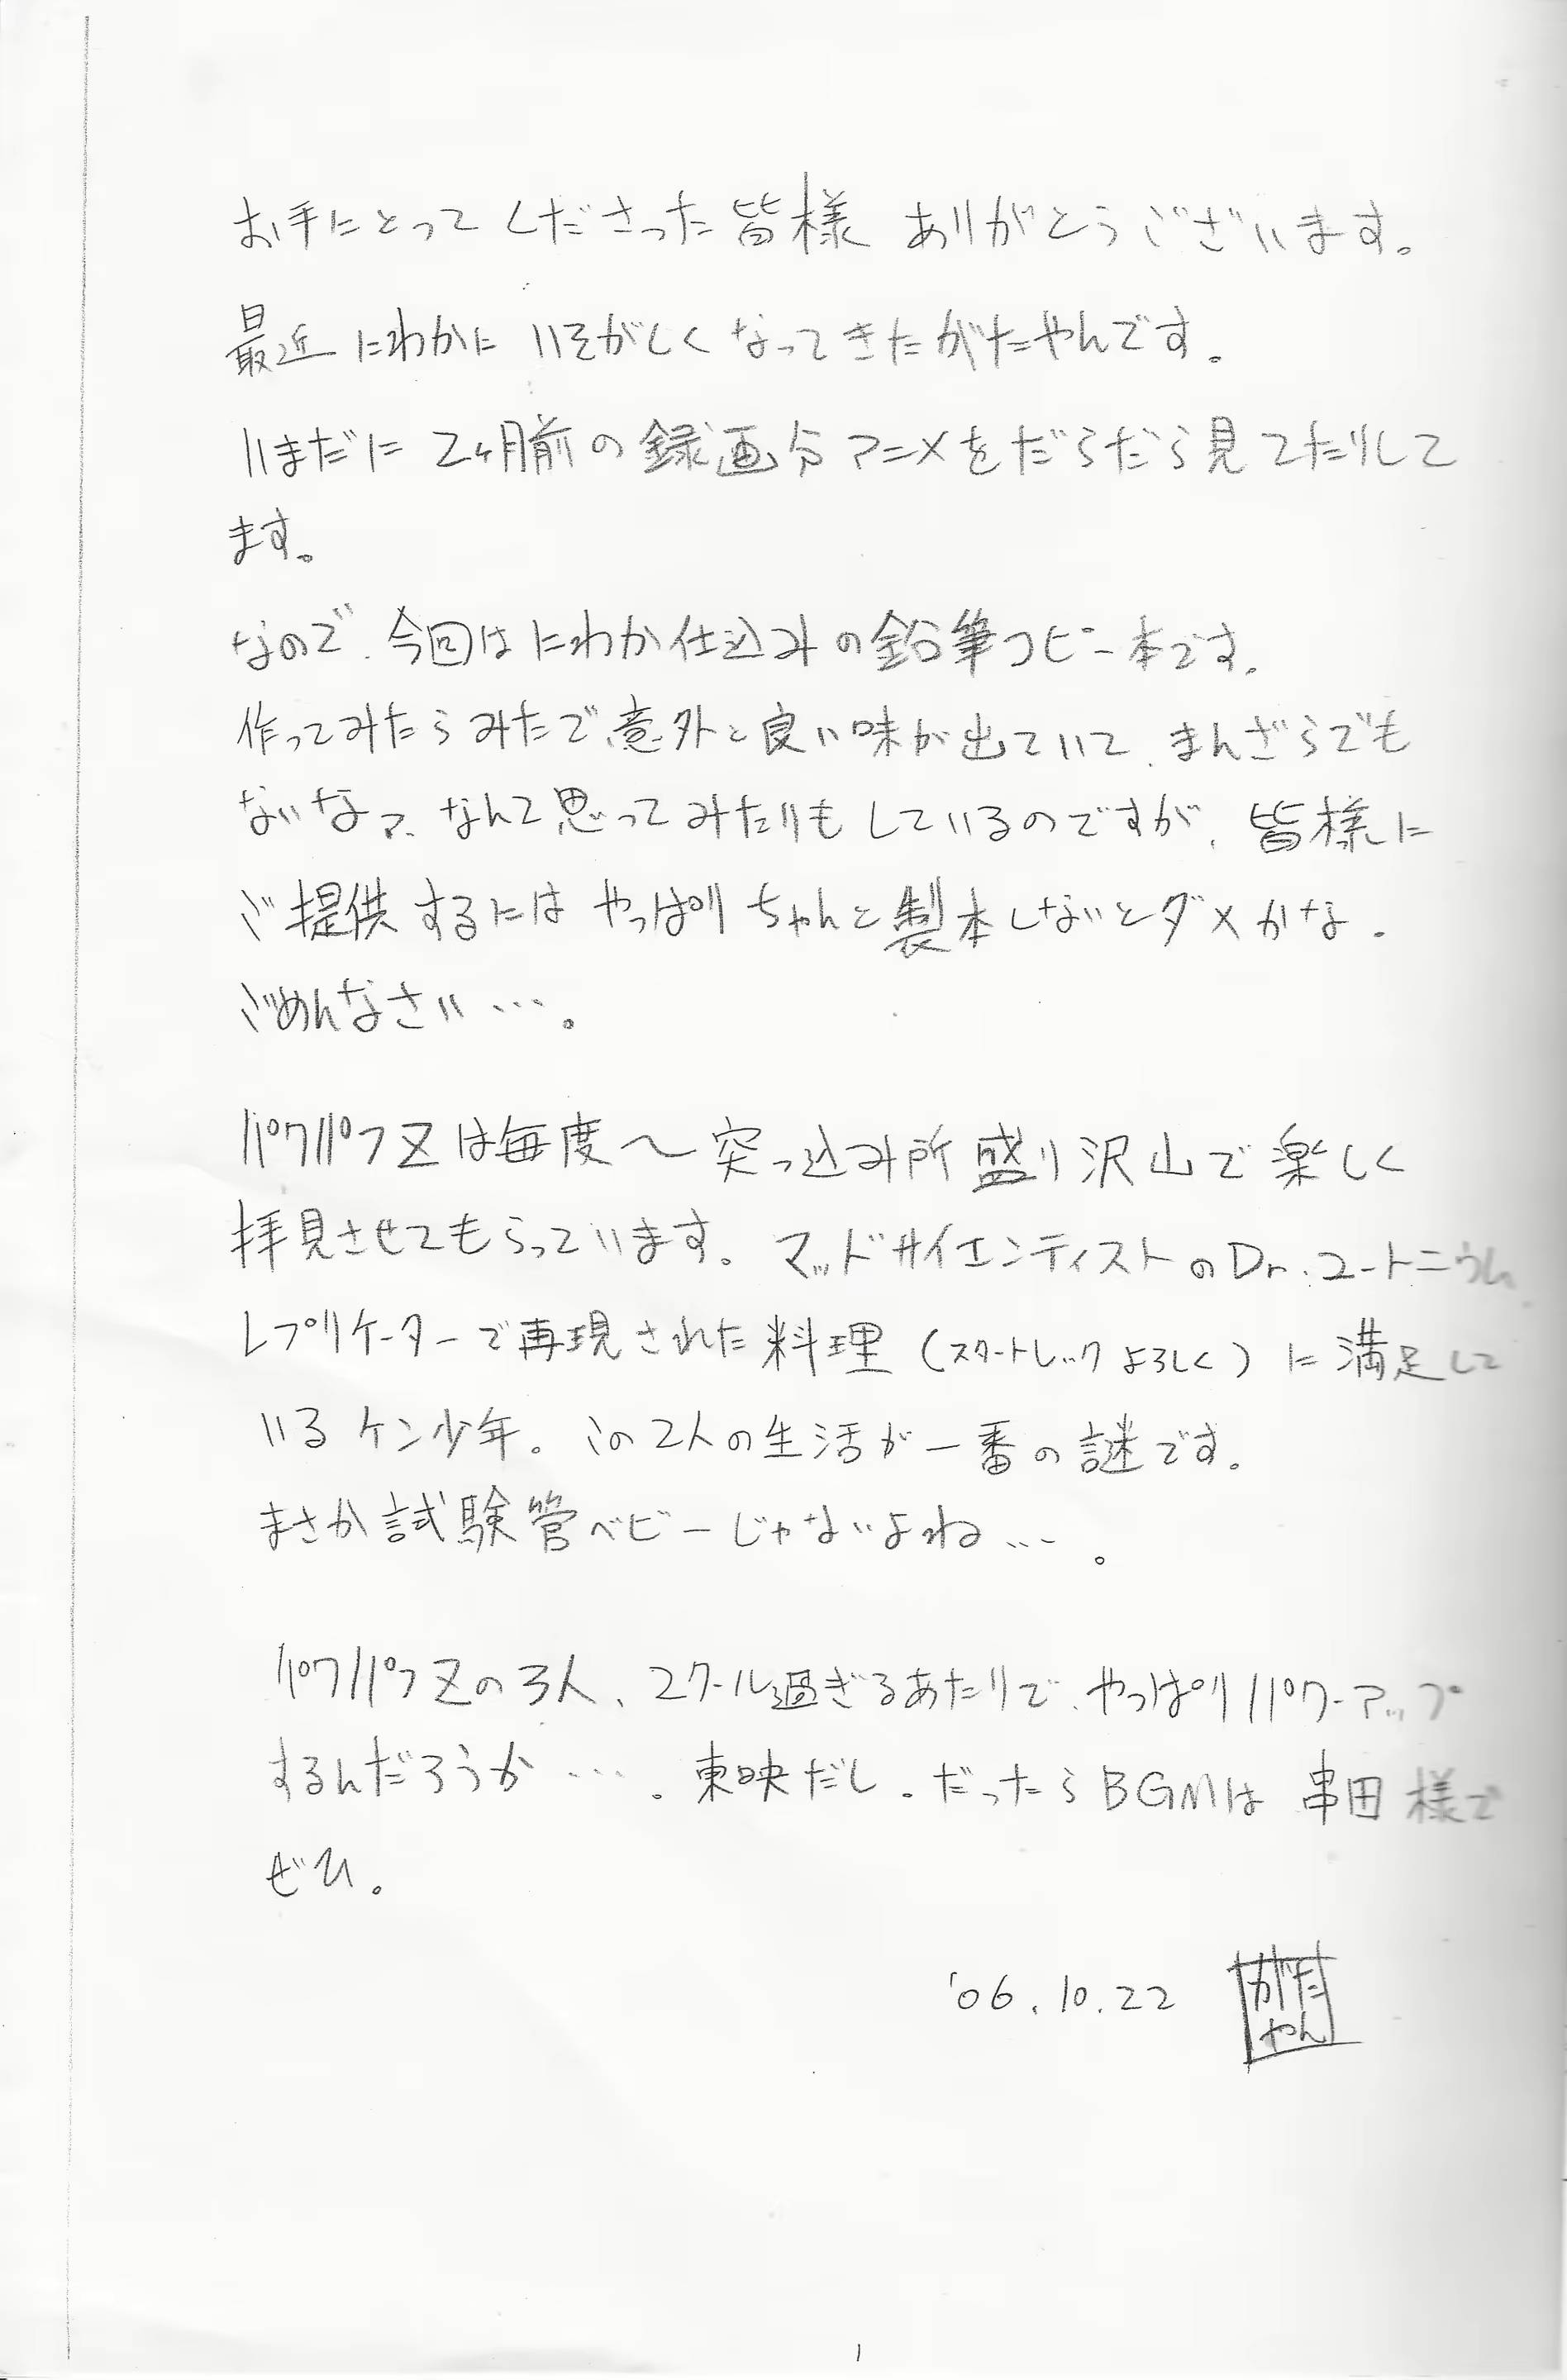 お手にとってくださった皆様 ありがとうございます。
最近にわかにいそがしくなってきたがたやんです。
いまだに2ヶ月前の録画分アニメをだらだら見てたりして
ます。
なので、今回はにわか仕込みの鉛筆コピー本です。
作ってみたらみたで、意外と良い味が出ていて、まんざらでも
ないなァ、なんて思ってみたりもしているのですが、皆様に
ご提供するにはやっぱりちゃんと製本しないとダメかな。
ごめんなさい…。
パワパフZは毎度〜突っ込み所盛り沢山で楽しく
拝見させてもらっています。マッドサイエンティストのDr.ユートニウム。
レプリケーターで再現された料理(スタートレックよろしく)に満足して
いるケン少年。この2人の生活が一番の謎です。
まさか試験管ベビーじゃないよね…。
パワパフZの3人、2クール過ぎるあたりで、やっぱりパワーアップ
するんだろうか…。東映だし。だったらBGMは串田様で
ぜひ。
'06.10.22 がた
やん
1